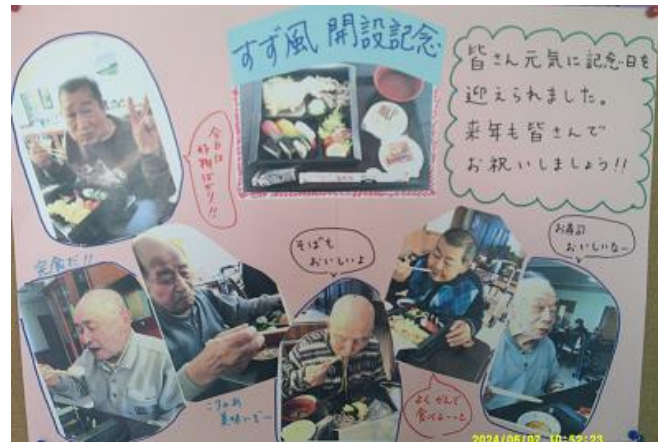 すず風 開設記念
皆さん元気に記念日を
迎えられました。
来年も皆さんで
お祝いしましょう!!
今日は
好物ばかり!!
完食だ!!
そばも
おいしいよ
お寿司
おいしいなー
こりゃあ
美味いぞー
よくかんで
食べるーっと
2024/06/07 10:52:23